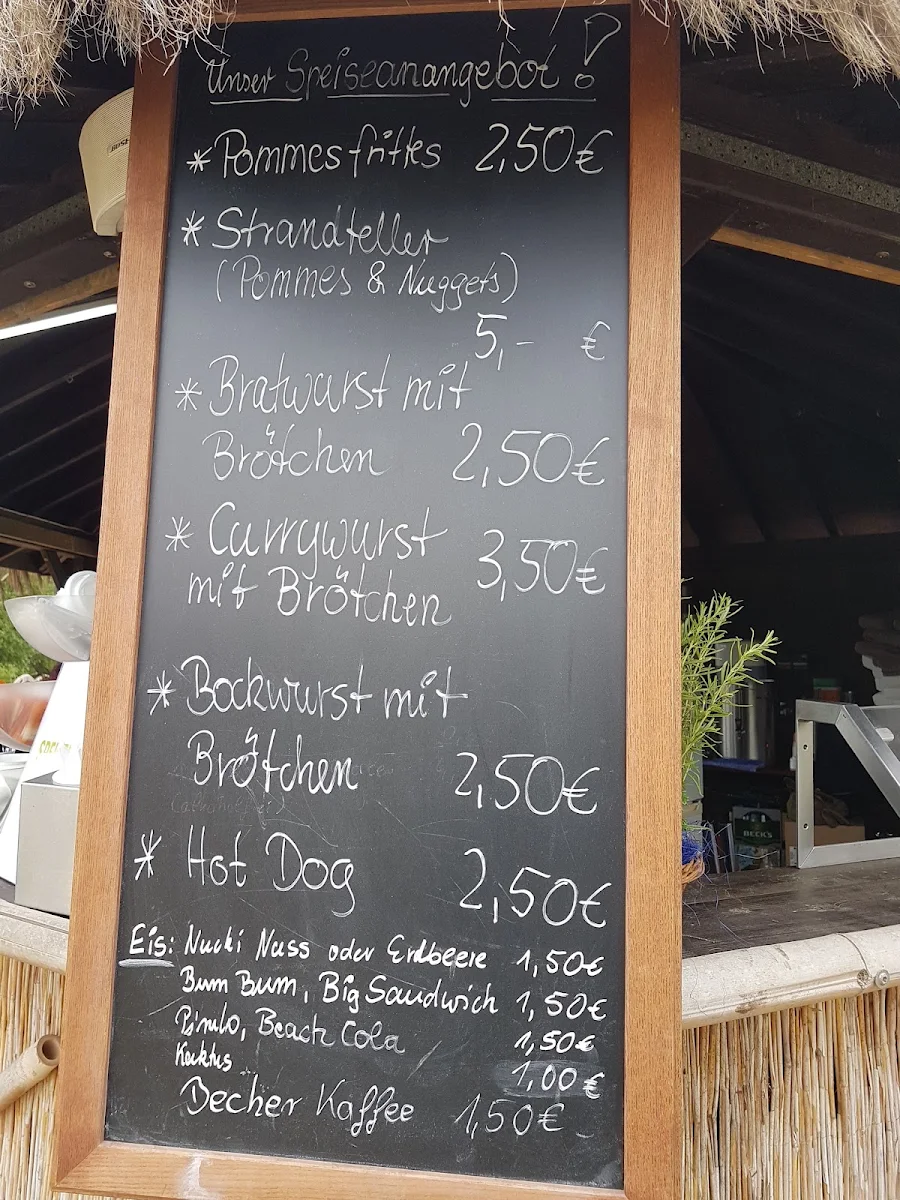 Unser Speiseanangebot!
* Pommesfrittes 2,50€
* Strandteller
(Pommes & Nuggets)
5,- €
* Bratwurst mit
Brötchen 2,50€
* Currywurst
mit Brötchen 3,50€
* Bockwurst mit
Brötchen 2,50€
* Hot Dog 2,50€
Eis: Nucki Nuss oder Erdbeere 1,50€
Bum Bum, Big Sandwich 1,50€
Beach Cola 1,50€
Kaktus 1,00€
Becher Kaffee 1,50€
BECK'S